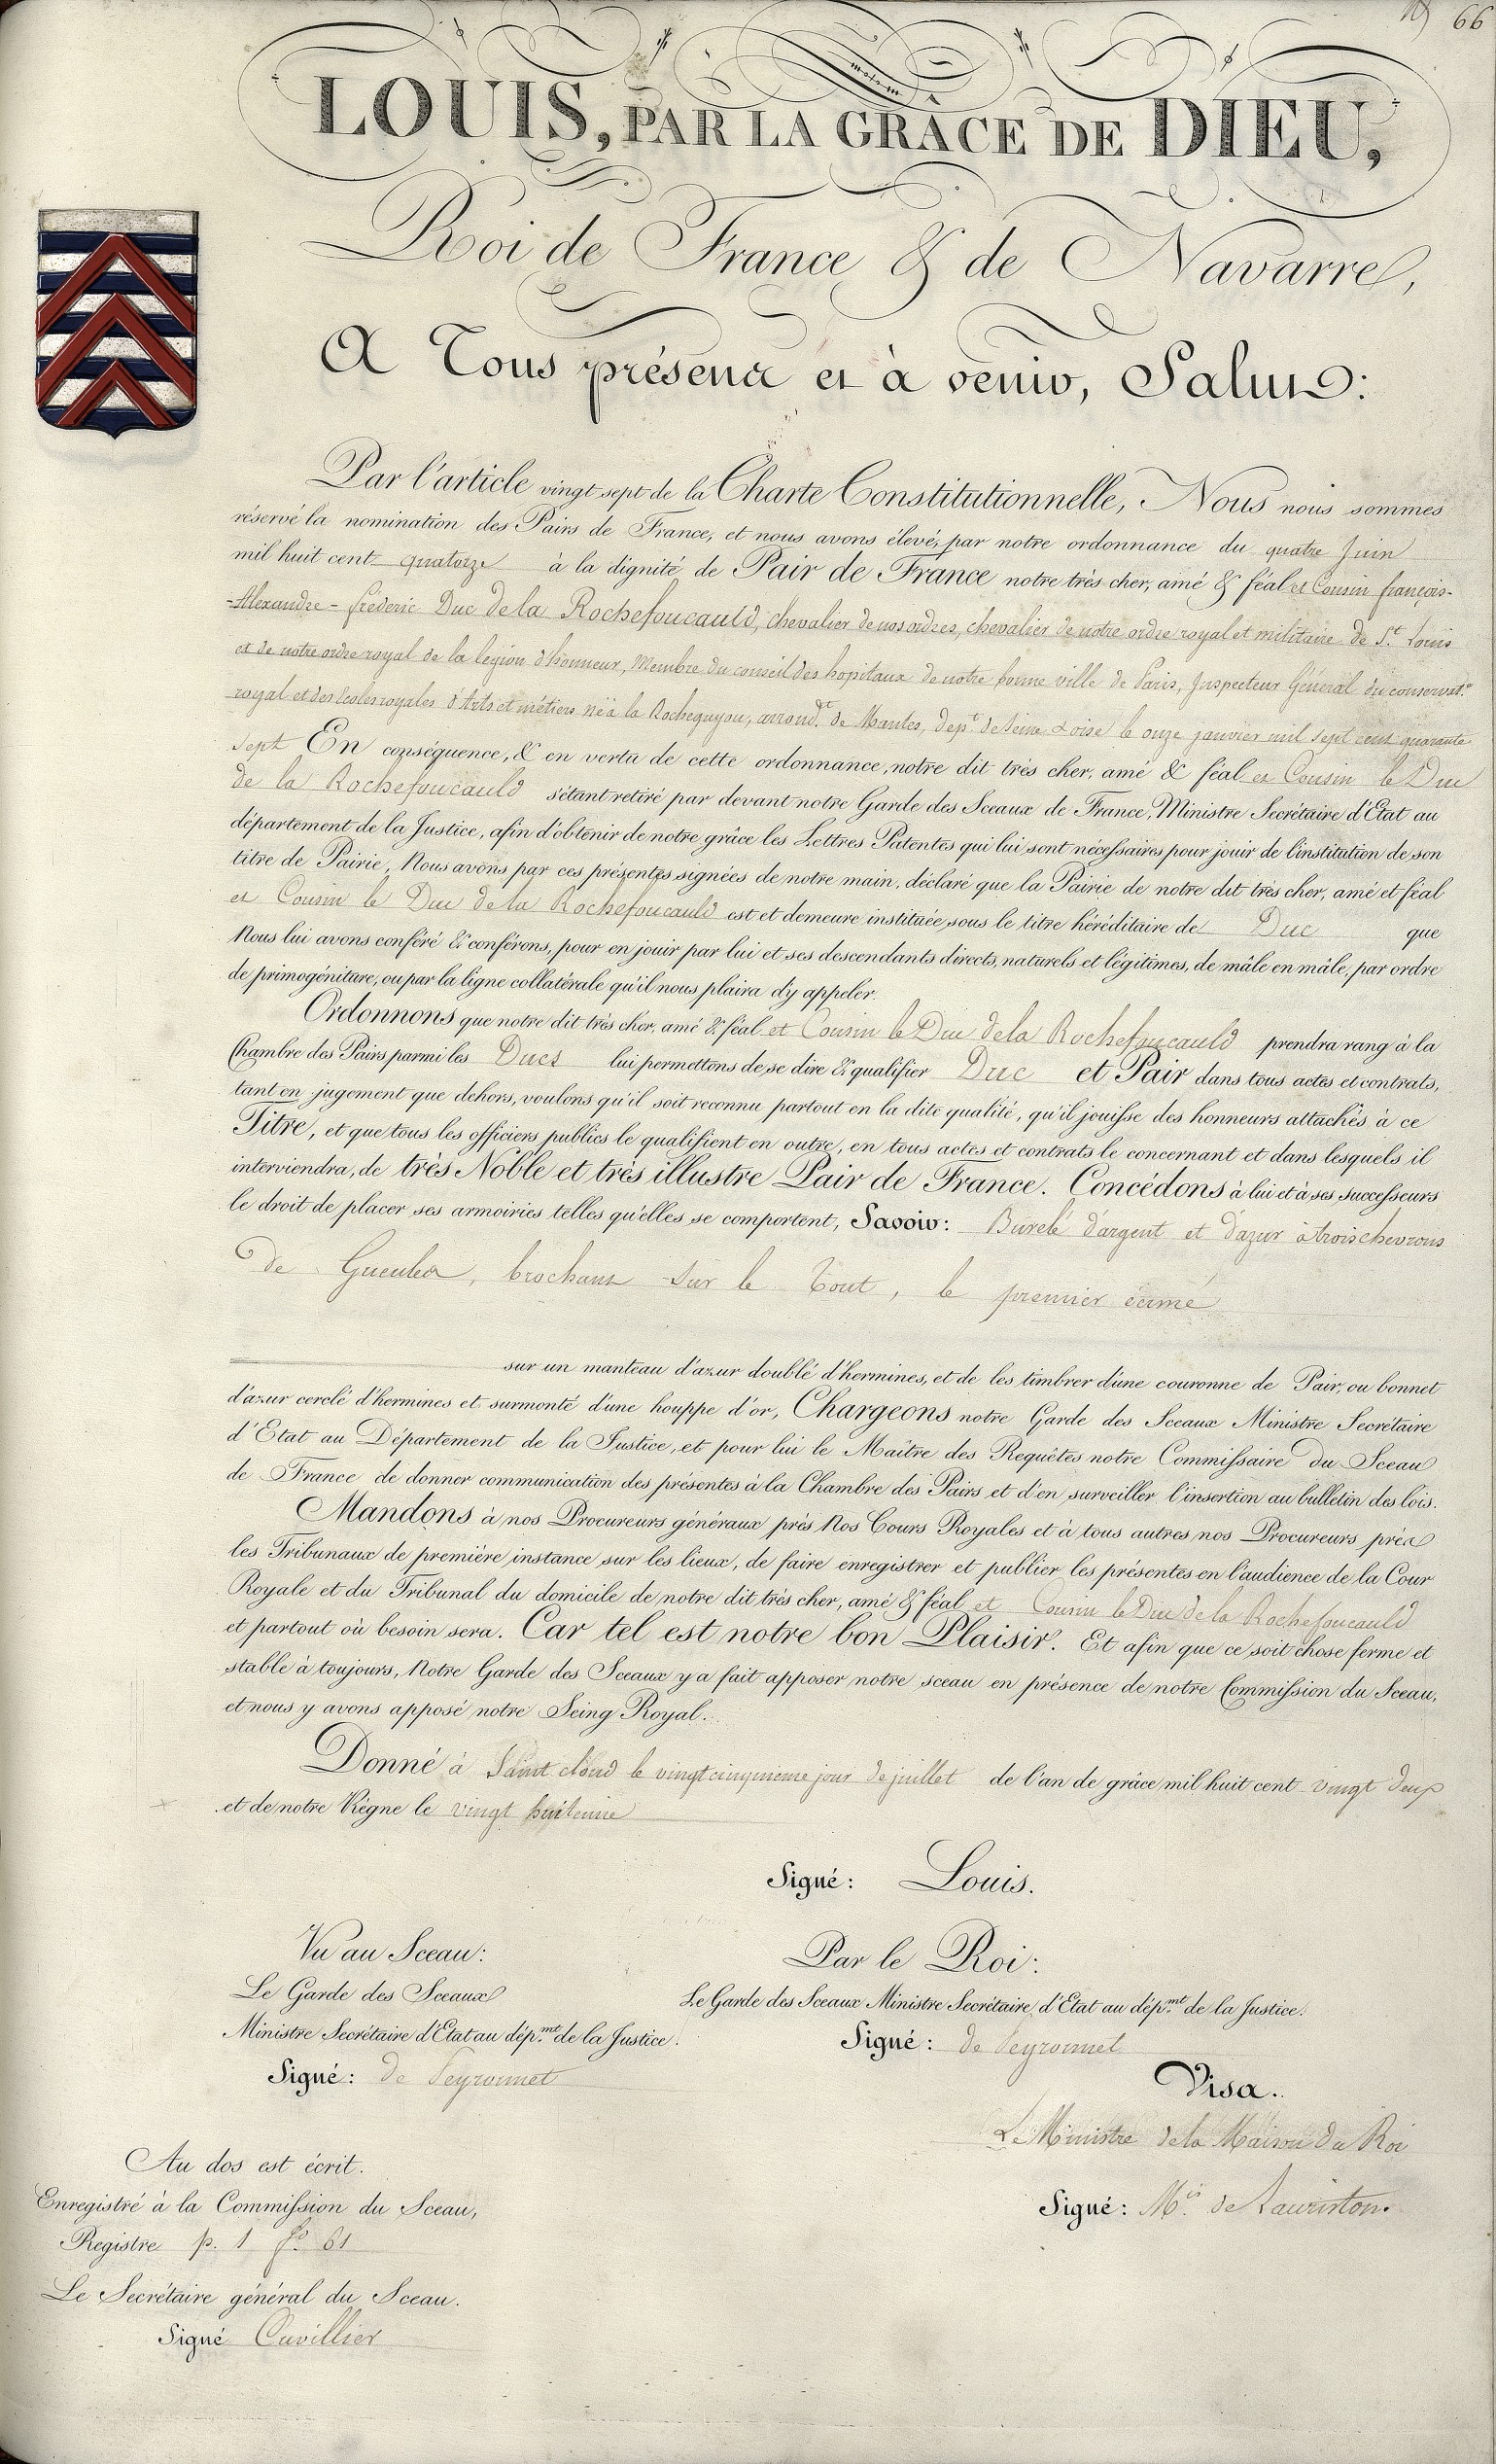 66
LOUIS, PAR LA GRÂCE DE DIEU,
Roi de France & de Navarre,
A Tous présens et à venir, Salut:
Par l'article vingt sept de la Charte Constitutionnelle, Nous nous sommes
réservé la nomination des Pairs de France, et nous avons élevé, par notre ordonnance du quatre Juin
mil huit cent quatorze à la dignité de Pair de France notre très cher, amé & féal et Cousin françois-
-Alexandre-frédéric Duc de la Rochefoucauld, chevalier de nos ordres, chevalier de notre ordre royal et militaire de St. Louis
et de notre ordre royal de la légion d'honneur, Membre du conseil des hopitaux de notre bonne ville de Paris, Inspecteur Général du conservat.re
royal et des Ecoles royales d'Arts et métiers né à la Rocheguyon, arrond.t de Mantes, dept. de Seine & oise le onze janvier mil sept cent quarante
sept En conséquence, & en vertu de cette ordonnance, notre dit très cher, amé & féal et Cousin le Duc
de la Rochefoucauld s'étant retiré par devant notre Garde des Sceaux de France, Ministre Secrétaire d'Etat au
département de la Justice, afin d'obtenir de notre grâce les Lettres Patentes qui lui sont nécessaires pour jouir de l'institution de son
titre de Pairie, Nous avons par ces présentes signées de notre main, déclaré que la Pairie de notre dit très cher, amé et féal
et Cousin le Duc de la Rochefoucauld est et demeure instituée sous le titre héréditaire de Duc que
Nous lui avons conféré & conférons, pour en jouir par lui et ses descendants directs, naturels et légitimes, de mâle en mâle, par ordre
de primogéniture, ou par la ligne collatérale qu'il nous plaira d'y appeler.
Ordonnons que notre dit très cher, amé & féal et Cousin le Duc de la Rochefoucauld prendra rang à la
Chambre des Pairs parmi les Ducs lui permettons de se dire & qualifier Duc et Pair dans tous actes et contrats,
tant en jugement que dehors, voulons qu'il soit reconnu partout en la dite qualité, qu'il jouisse des honneurs attachés à ce
Titre, et que tous les officiers publics le qualifient en outre, en tous actes et contrats le concernant et dans lesquels il
interviendra, de très Noble et très illustre Pair de France. Concédons à lui et à ses successeurs
le droit de placer ses armoiries telles qu'elles se comportent, Savoir: Burelé d'argent et d'azur à trois chevrons
de Gueules, brochant sur le Tout, le premier écimé
sur un manteau d'azur doublé d'hermines, et de les timbrer d'une couronne de Pair, ou bonnet
d'azur cerclé d'hermines et surmonté d'une houppe d'or, Chargeons notre Garde des Sceaux Ministre Secrétaire
d'Etat au Département de la Justice, et pour lui le Maître des Requêtes notre Commissaire du Sceau
de France de donner communication des présentes à la Chambre des Pairs et d'en surveiller l'insertion au bulletin des lois.
Mandons à nos Procureurs généraux près Nos Cours Royales et à tous autres nos Procureurs près
les Tribunaux de première instance sur les lieux, de faire enregistrer et publier les présentes en l'audience de la Cour
Royale et du Tribunal du domicile de notre dit très cher, amé & féal et Cousin le Duc de la Rochefoucauld
et partout où besoin sera. Car tel est notre bon Plaisir. Et afin que ce soit chose ferme et
stable à toujours, Notre Garde des Sceaux y a fait apposer notre sceau en présence de notre Commission du Sceau,
et nous y avons apposé notre Seing Royal.
Donné à Saint cloud le vingt cinquieme jour de juillet de l'an de grâce mil huit cent vingt deux
et de notre Règne le vingt huitieme
Signé: Louis.
Vu au Sceau:
Le Garde des Sceaux
Ministre Secrétaire d'Etat au dép.mt de la Justice.
Signé: de Peyronnet
Par le Roi:
Le Garde des Sceaux Ministre Secrétaire d'Etat au dép.mt de la Justice.
Signé: de Peyronnet
Visa.
Le Ministre de la Maison du Roi
Signé: M.is de Lauriston.
Au dos est écrit.
Enregistré à la Commission du Sceau,
Registre p. 1 fo. 61
Le Secrétaire général du Sceau.
Signé Cuvillier